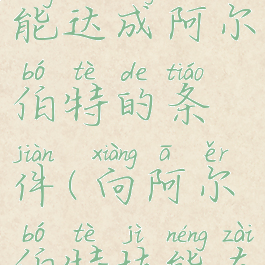 能达成阿尔
bó tè de tiáo
伯特的条
jiàn xiàng ā ěr
件(向阿尔
bó tè jì néng zài
伯特技能在